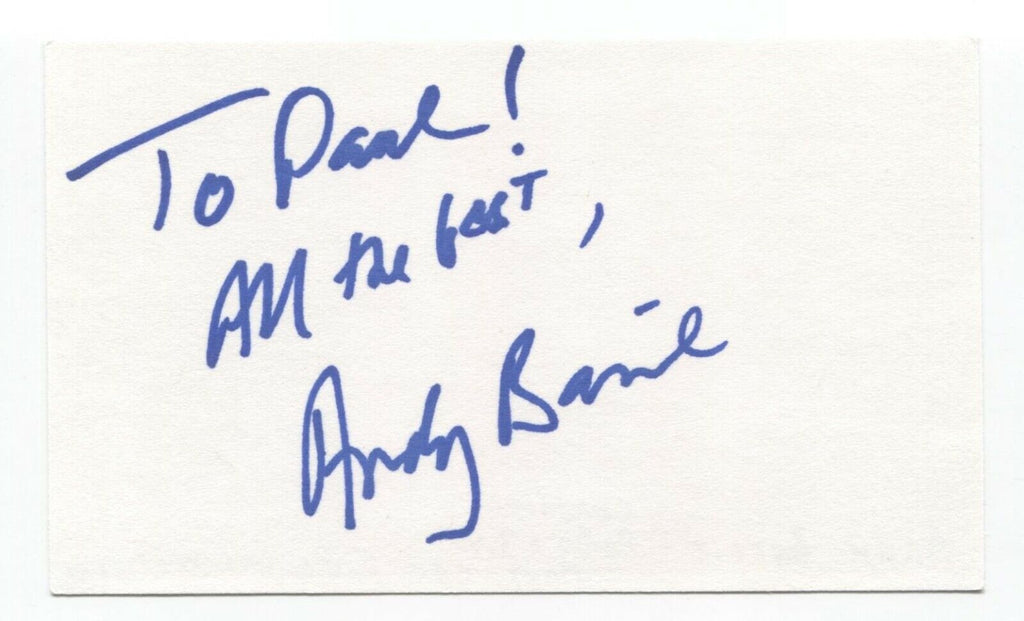 To Paul!
All the best,
Andy Barrie